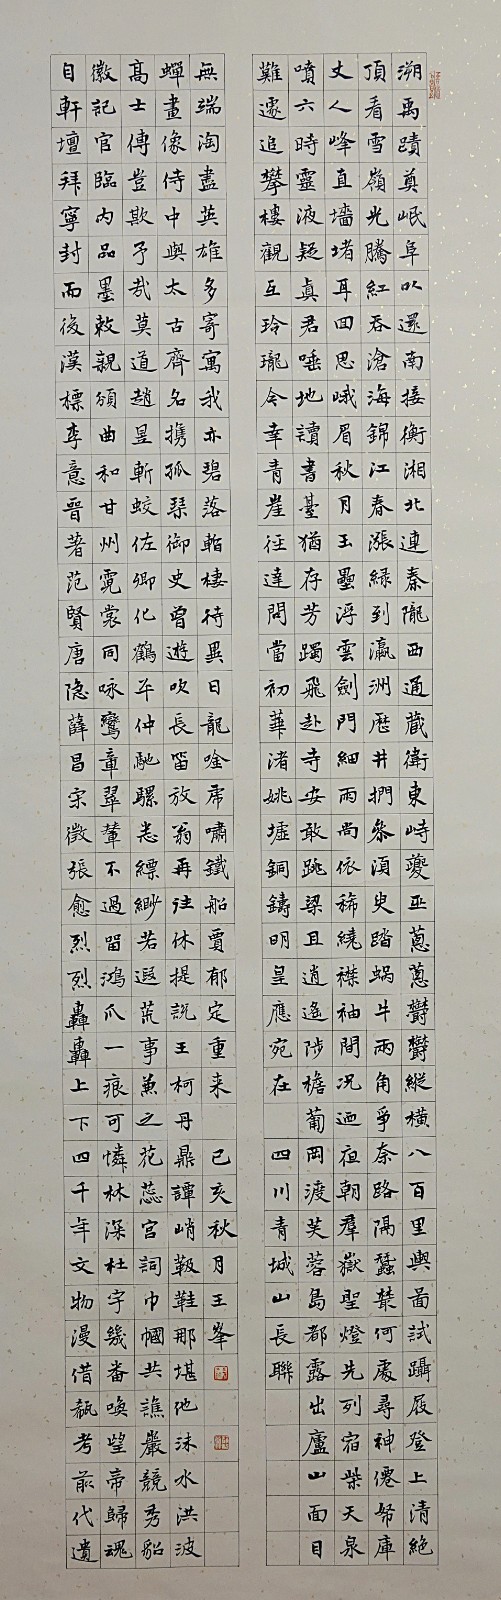 溯禹蹟奠岷阜以還南接衡湘北連秦隴西通藏衛東峙夔巫蔥蔥鬱鬱縱橫八百里輿圖試躡屐登上清絕
頂看雪嶺光騰紅吞滄海錦江春漲綠到瀛洲歷井捫參須臾踏蝸牛兩角爭奈路隔蠶叢何處尋神僊帑庫
丈人峰直墻堵耳回思峨眉秋月玉壘浮雲劍門細雨尚依稀繞襟袖間況迺夜朝羣嶽聖燈先列宿柴天泉
噴六時靈液疑真君唾地讀書臺猶存芳躅飛赴寺安敢跳梁且逍遙陟檐葡岡渡芙蓉島都露出廬山面目
難遽追攀樓觀互玲瓏今幸青崖徑達問當初華渚姚墟銅鑄明皇應宛在 四川青城山長聯
自軒壇拜寧封而後漢標李意晉著范賢唐隐薛昌宋徵張愈烈烈轟轟上下四千年文物漫借瓻考前代遺
徽記官臨內品墨敕親頒曲和甘州霓裳同咏鸞章翠輦不過留鴻爪一痕可憐林深杜宇幾番喚望帝歸魂
高士傳豈欺予哉莫道趙昱斬蛟佐卿化鶴平仲馳騾悉縹緲若遐荒事兼之花蕊宮詞巾幗共譙巖競秀貂
蟬畫像侍中與太古齊名携孤琴御史曾遊吹長笛放翁再往休提說王柯丹鼎譚峭靸鞋那堪他沫水洪波
無端淘盡英雄多寄寓我亦碧落暫棲待異日龍唫虎嘯鐵船賈郁定重来 己亥秋月王峯